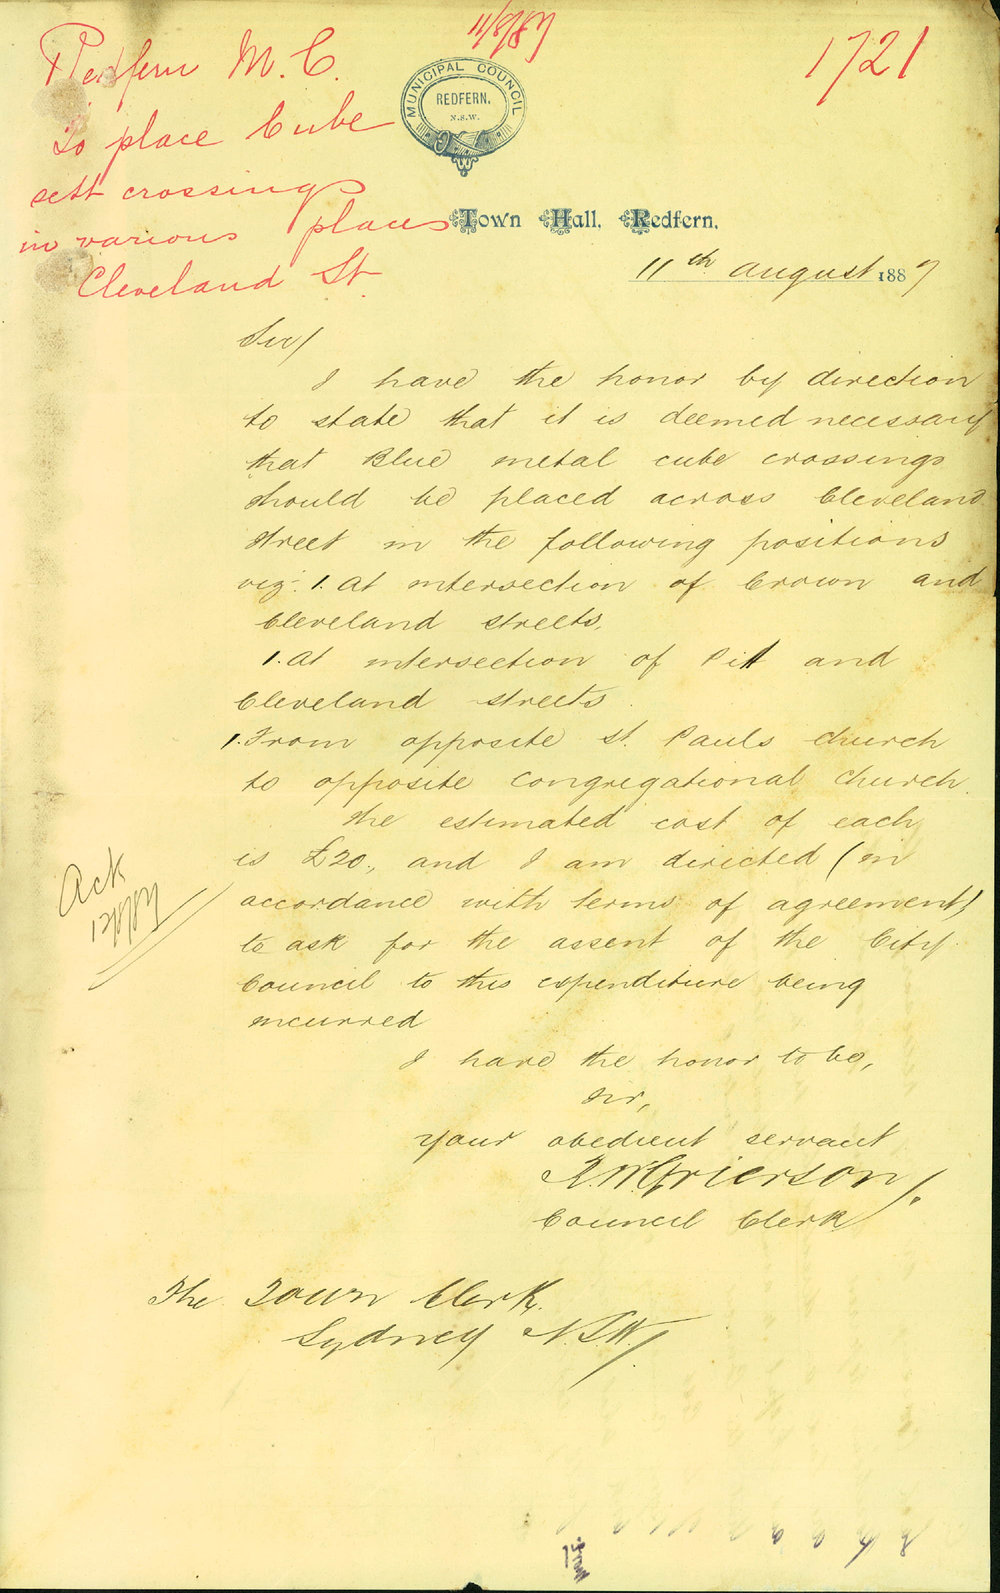 11/8/87
1721
Redfern M. C.
To place Cube
sett crossings
in various places
Cleveland St
MUNICIPAL COUNCIL
REDFERN.
N.S.W.
Town Hall, Redfern,
11th August 1887
Sir/
I have the honor by direction
to state that it is deemed necessary
that Blue metal cube crossings
should be placed across Cleveland
street in the following positions
viz: 1. At intersection of Crown and
Cleveland streets.
1. At intersection of Pitt and
Cleveland streets.
1. From opposite St. Pauls church
to opposite Congregational church.
The estimated cost of each
is £20., and I am directed (in
accordance with terms of agreement)
to ask for the assent of the City
Council to this expenditure being
incurred
I have the honor to be,
Sir,
your obedient servant
Grierson
Council Clerk
The Town Clerk.
Sydney N.S.W/
Ack
12/8/87